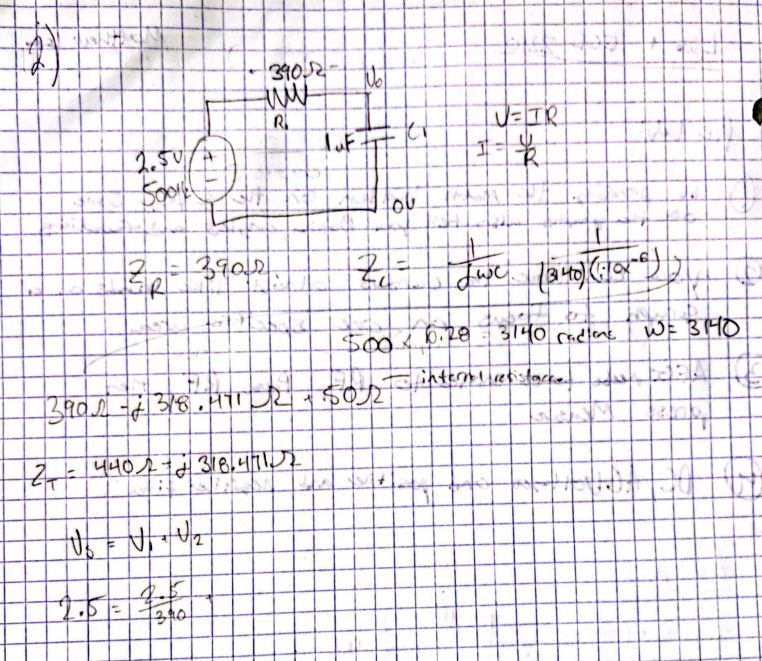 2)
390Ω
V₀
R₁
V = IR
1uF
C₁
I = V/R
2.5V
+
-
500
0V
Z_R = 390Ω.
Z_C = 1/jωc
1/(3140)(1·10x⁻⁶)
500 × 6.28 = 3140 radians ω = 3140
390Ω - j 318.471Ω + 50Ω internal resistance
Z_T = 440Ω - j 318.471Ω
= V₁ + V₂
2.5 = 2.5/390